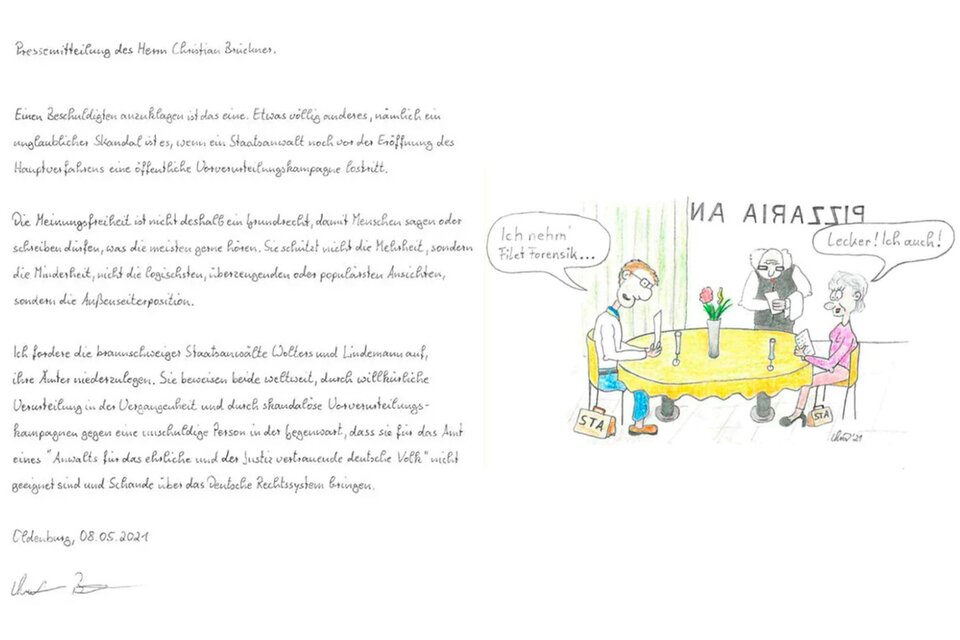 Pressemitteilung des Herrn Christian Brückner.
Einen Beschuldigten anzuklagen ist das eine. Etwas völlig anderes, nämlich ein
unglaublicher Skandal ist es, wenn ein Staatsanwalt noch vor der Eröffnung des
Hauptverfahrens eine öffentliche Vorverurteilungskampagne lostritt.
Die Meinungsfreiheit ist nicht deshalb ein Grundrecht, damit Menschen sagen oder
schreiben dürfen, was die meisten gerne hören. Sie schützt nicht die Mehrheit, sondern
die Minderheit, nicht die logischsten, überzeugenden oder populärsten Ansichten,
sondern die Außenseiterposition.
Ich fordere die braunschweiger Staatsanwälte Wolters und Lindemann auf,
ihre Ämter niederzulegen. Sie beweisen beide weltweit, durch willkürliche
Verurteilung in der Vergangenheit und durch skandalöse Vorverurteilungs-
kampagnen gegen eine unschuldige Person in der Gegenwart, dass sie für das Amt
eines "Anwalts für das ehrliche und der Justiz vertrauende deutsche Volk" nicht
geeignet sind und Schande über das Deutsche Rechtssystem bringen.
Oldenburg, 08.05.2021
PIZZARIA AN
Ich nehm'
Filet Forensik...
Lecker! Ich auch!
STA
STA